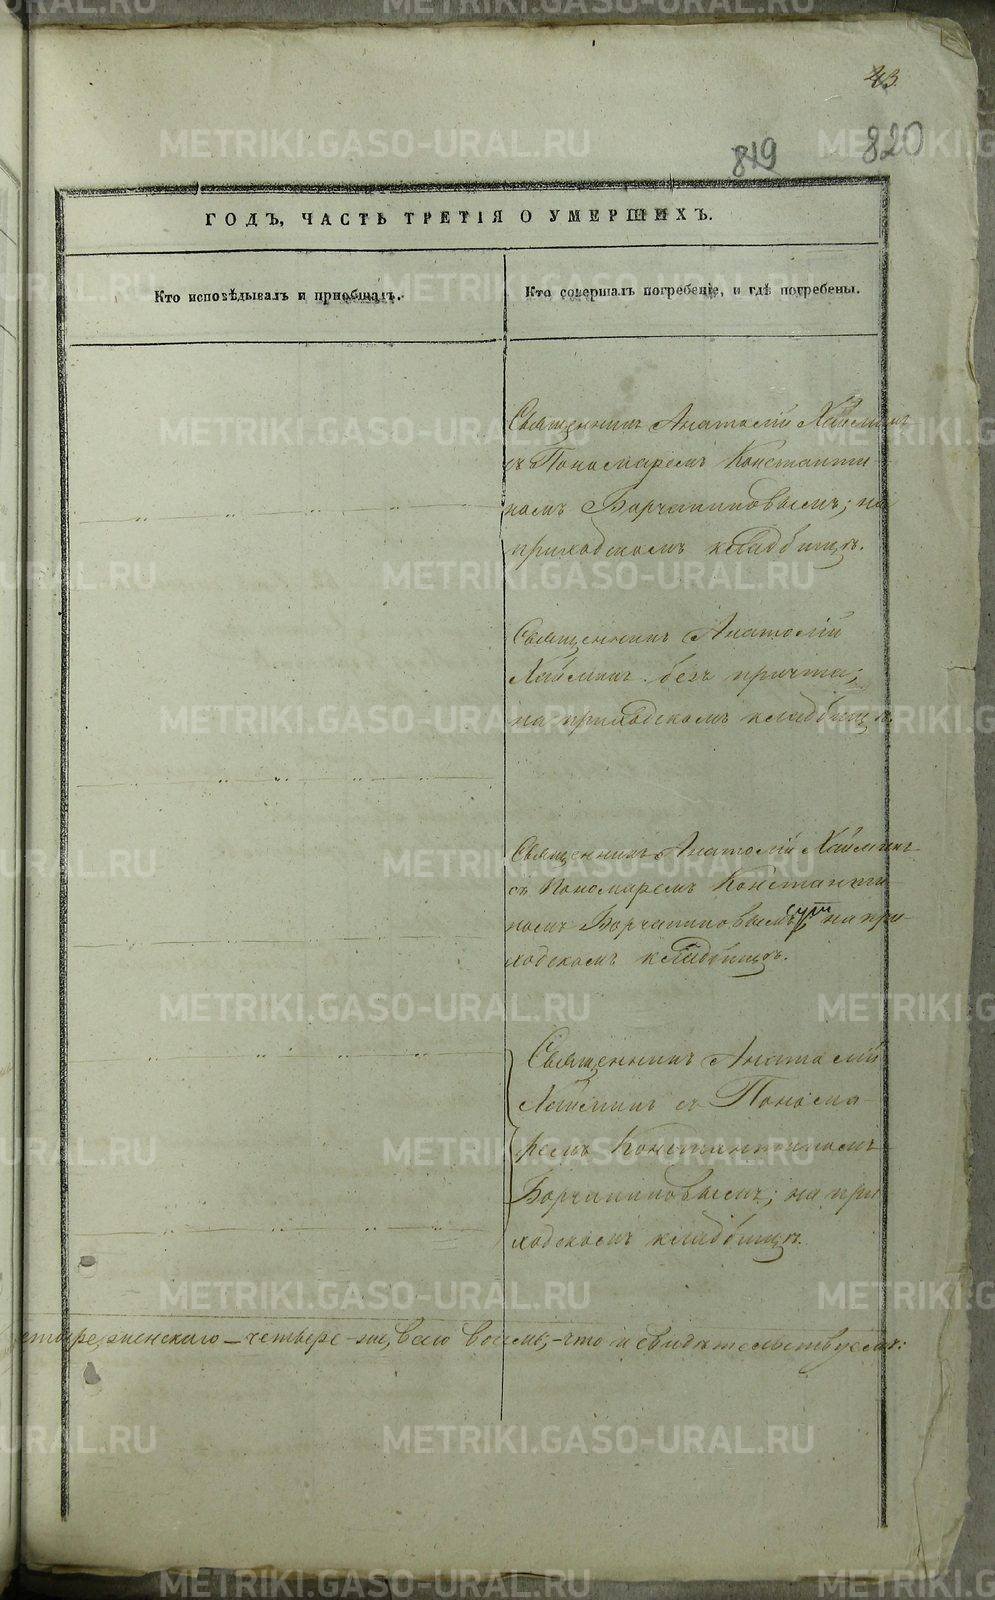 43.
819 820
ГОДЪ, ЧАСТЬ ТРЕТІЯ О УМЕРШИХЪ.
Кто исповѣдывалъ и пріобщалъ.
Кто совершалъ погребеніе, и гдѣ погребены.
Священникъ Анатолій Хайминъ
съ Пономаремъ Константи-
номъ Борчаниновымъ; на
приходскомъ кладбищѣ.
Священникъ Анатолій
Хайминъ безъ причта;
на приходскомъ кладбищѣ.
Священникъ Анатолій Хайминъ
съ Пономаремъ Константи-
номъ Борчаниновымъ; на при-
ходскомъ кладбищѣ.
Священникъ Анатолій
Хайминъ съ Понома-
ремъ Константиномъ
Борчаниновымъ; на при
ходскомъ кладбищѣ.
етыре, женскаго – четыре – же, всего восемь, – что и свидѣтельствуемъ:
METRIKI.GASO-URAL.RU